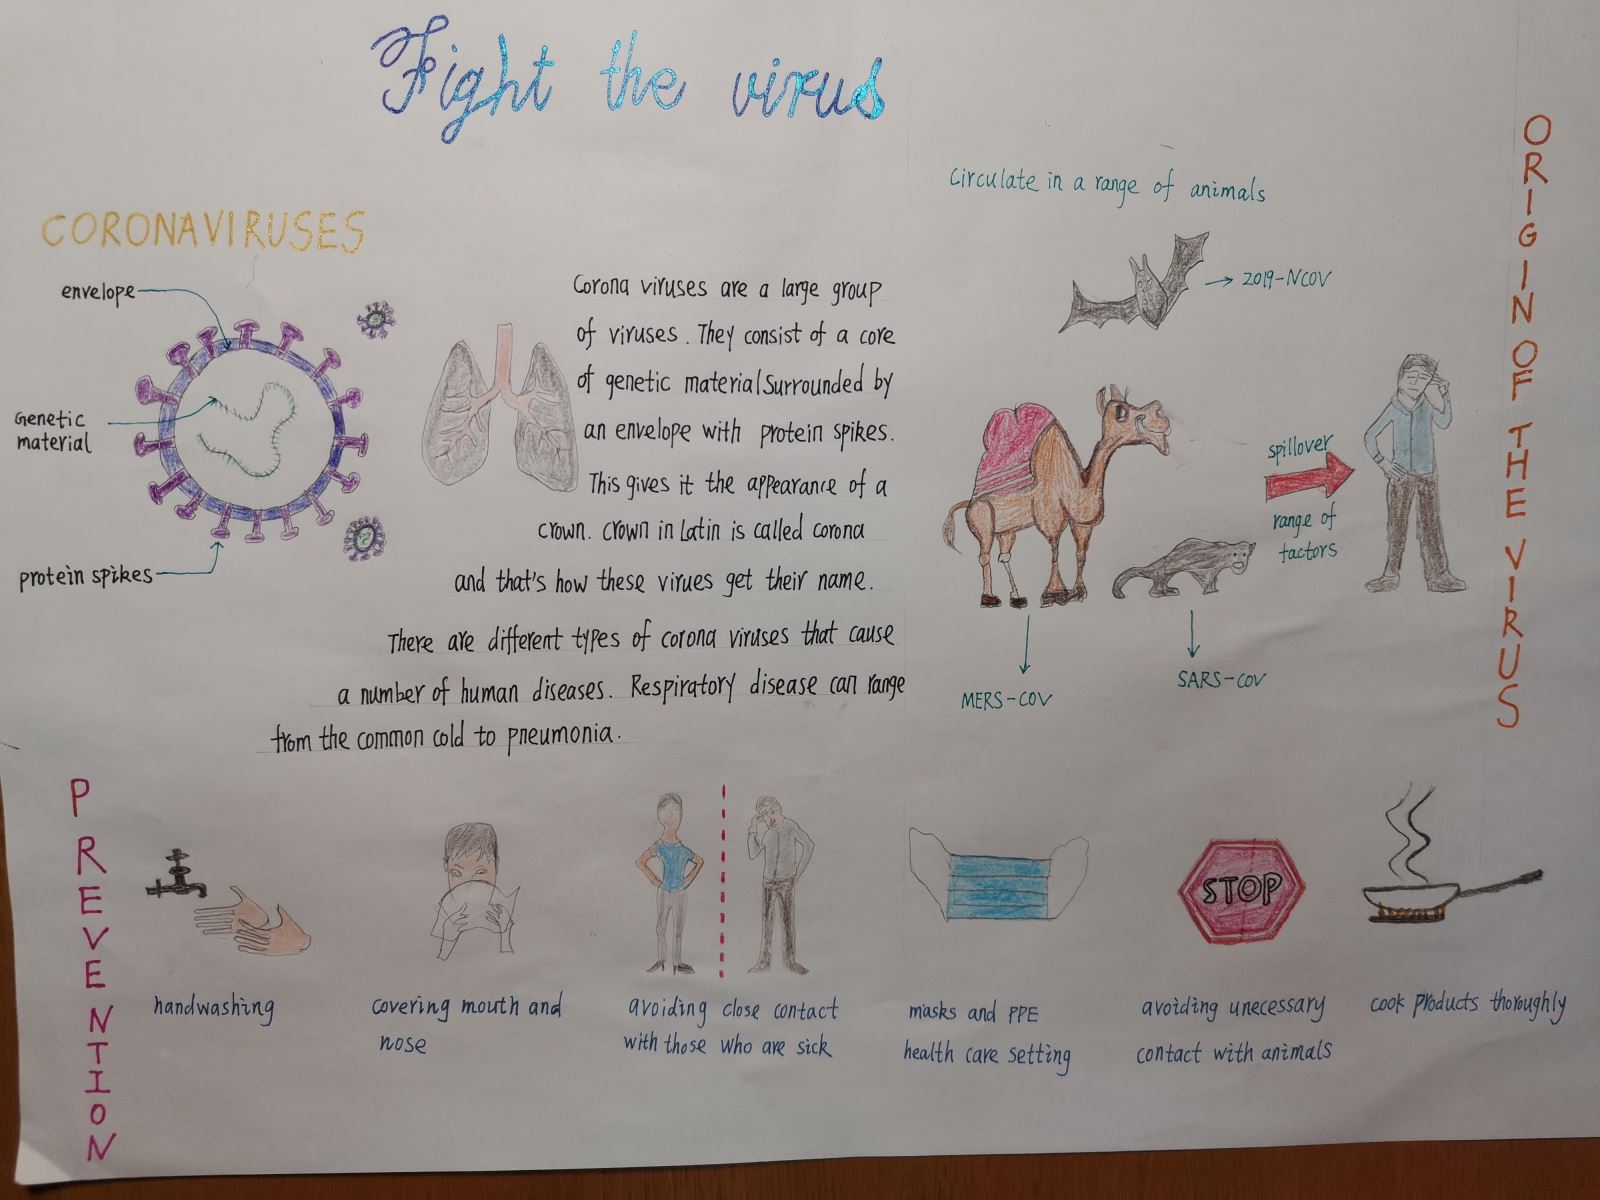 Fight the virus
CORONAVIRUSES
envelope
Genetic
material
protein spikes
Corona viruses are a large group
of viruses. They consist of a core
of genetic material surrounded by
an envelope with protein spikes.
This gives it the appearance of a
crown. crown in Latin is called corona
and that's how these virues get their name.
There are different types of corona viruses that cause
a number of human diseases. Respiratory disease can range
from the common cold to pneumonia.
ORIGIN OF THE VIRUS
Circulate in a range of animals
2019-NCOV
spillover
range of
factors
MERS-COV
SARS-COV
PREVENTION
handwashing
covering mouth and
nose
avoiding close contact
with those who are sick
masks and PPE
health care setting
STOP
avoiding unecessary
contact with animals
cook products thoroughly